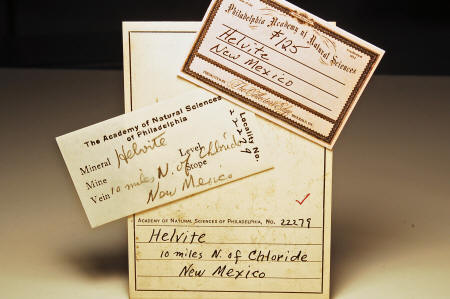 Philadelphia Academy of Natural Sciences
$125
Helvite
New Mexico
The Academy of Natural Sciences
of Philadelphia
Locality No.
22279
Mineral Helvite
Level
Mine
Stope
Vein 10 miles N. of Chloride
New Mexico
Academy of Natural Sciences of Philadelphia, No. 22279
Helvite
10 miles N. of Chloride
New Mexico